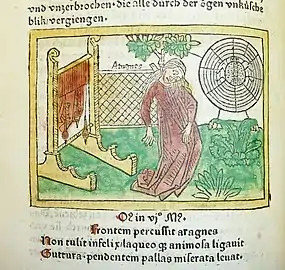 vnd vnzerbrochen · die alle durch der ögen vnküsche
blik vergiengen ·
Aragnes
in vjº
Frontem percussit aragnea
Non tulit infelix laqueo qꝫ animosa ligauit
Guttura · pendentem pallas miserata leuat ·